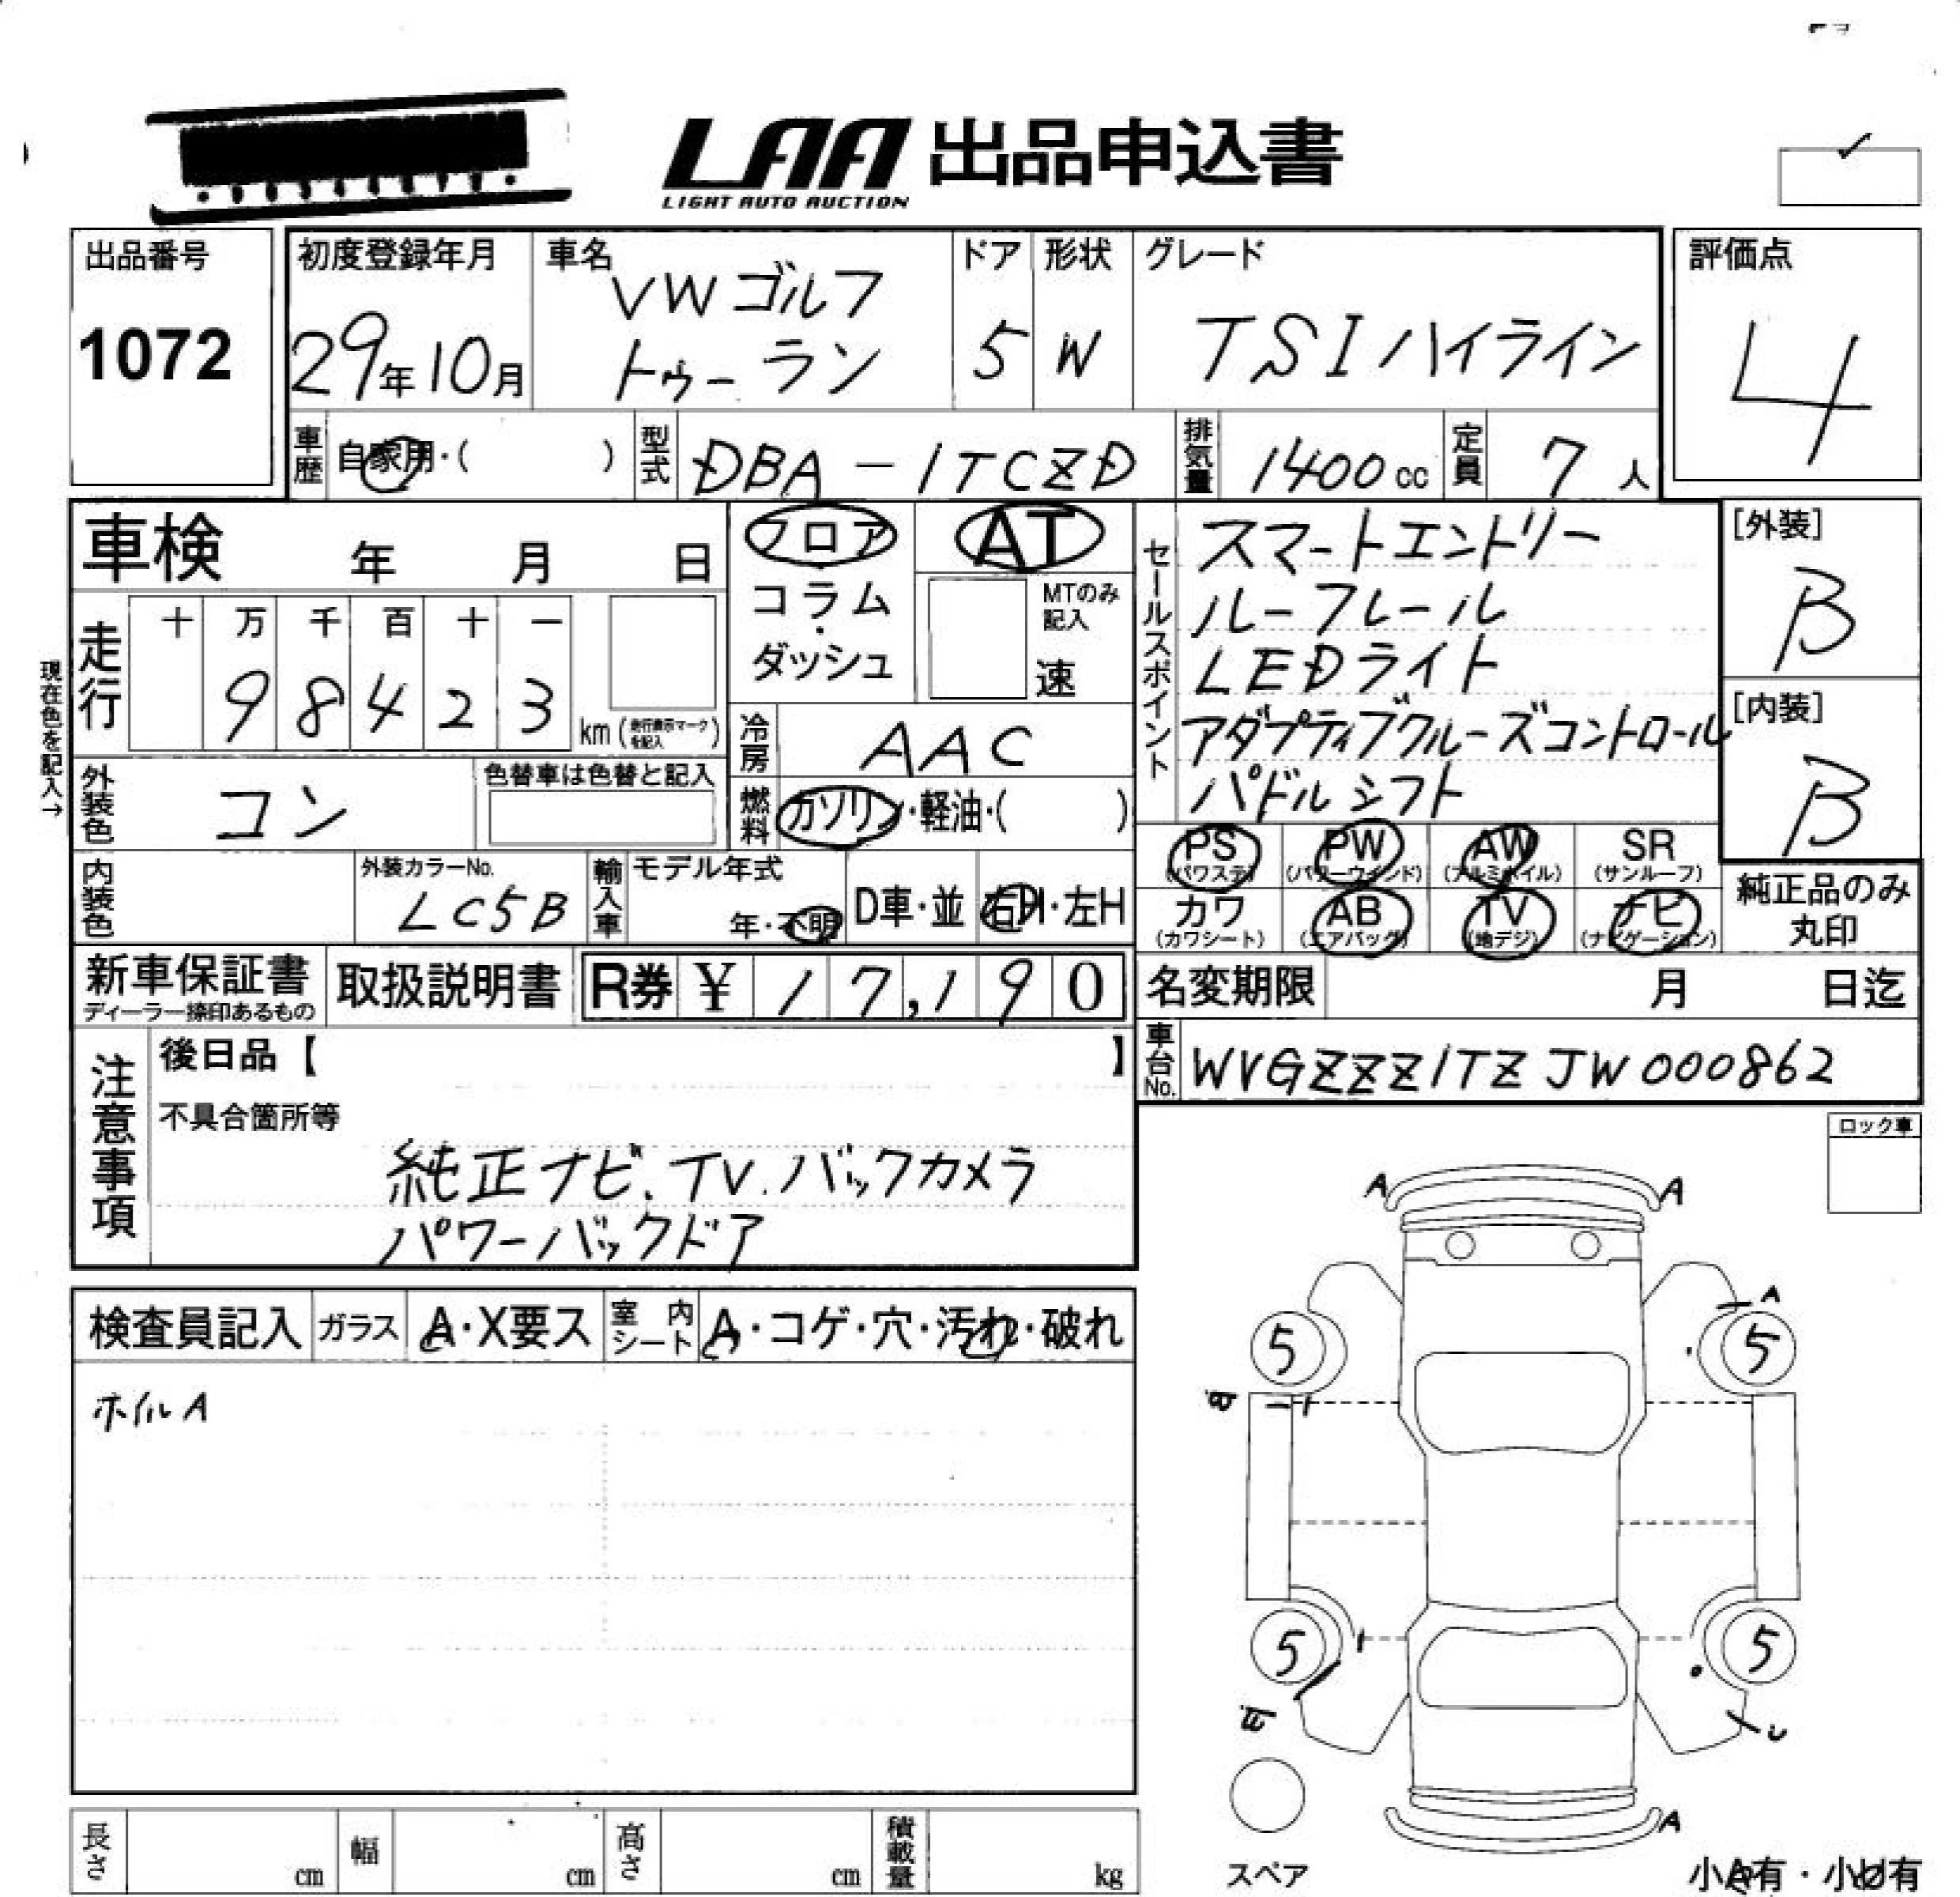 LAA 出品申込書
LIGHT AUTO AUCTION
出品番号
1072
初度登録年月
29年10月
車名
VWゴルフ
トゥーラン
ドア
5
形状
W
グレード
TSIハイライン
評価点
4
車歴 自家用・( )
型式 DBA-1TCZD
排気量 1400cc
定員 7人
車検 年 月 日
走行 十 万 千 百 十 一
9 8 4 2 3 km(走行表示マークを記入)
現在色を記入→
外装色 コン
色替車は色替と記入
内装色
外装カラーNo.
LC5B
フロア
コラム
・
ダッシュ
AT
MTのみ記入
速
冷房 AAC
燃料 ガソリン・軽油・( )
輸入車 モデル年式
年・不明
D車・並 右H・左H
セールスポイント
スマートエントリー
ルーフレール
LEDライト
アダプティブクルーズコントロール
パドルシフト
[外装]
B
[内装]
B
PS (パワステ) PW (パワーウィンド) AW (アルミホイル) SR (サンルーフ)
カワ (カワシート) AB (エアバッグ) TV (地デジ) ナビ (ナビゲーション)
純正品のみ
丸印
新車保証書
ディーラー捺印あるもの
取扱説明書
R券 ¥ 17,190
名変期限 月 日迄
車台No. WVGZZZ1TZJW000862
注意事項
後日品【 】
不具合箇所等
純正ナビ.TV.バックカメラ
パワーバックドア
ロック車
検査員記入 ガラス A・X要ス 室内シート A・コゲ・穴・汚れ・破れ
ホイルA
A A
A
5 5
5 5
A
スペア
小A有・小U有
長さ cm 幅 cm 高さ cm 積載量 kg